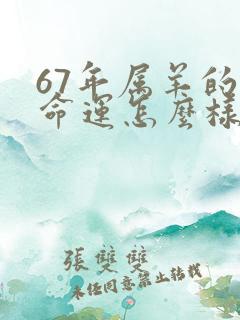 67年属羊的
命运怎麽样
張雙雙
未经同意禁止转载